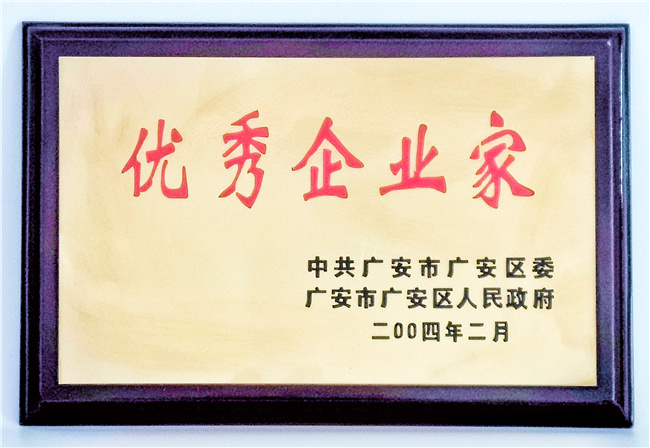 优秀企业家
中共广安市广安区委
广安市广安区人民政府
二00四年二月